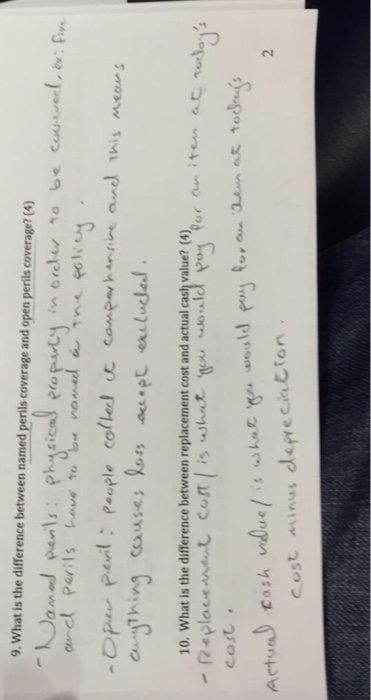 9. What is the difference between named perils coverage and open perils coverage? (4)
- Named perils: physical property in order to be covered. ex: five
and perils have to be named in the policy.
- Open peril: people called it comparhensive and this means
anything causes loss except excluded.
10. What is the difference between replacement cost and actual cash value? (4)
- Replacement cost/ is what you would pay for an item at today's
cost.
Actual cash value/ is what you would pay for an item at today's
cost minus depreciation.
2